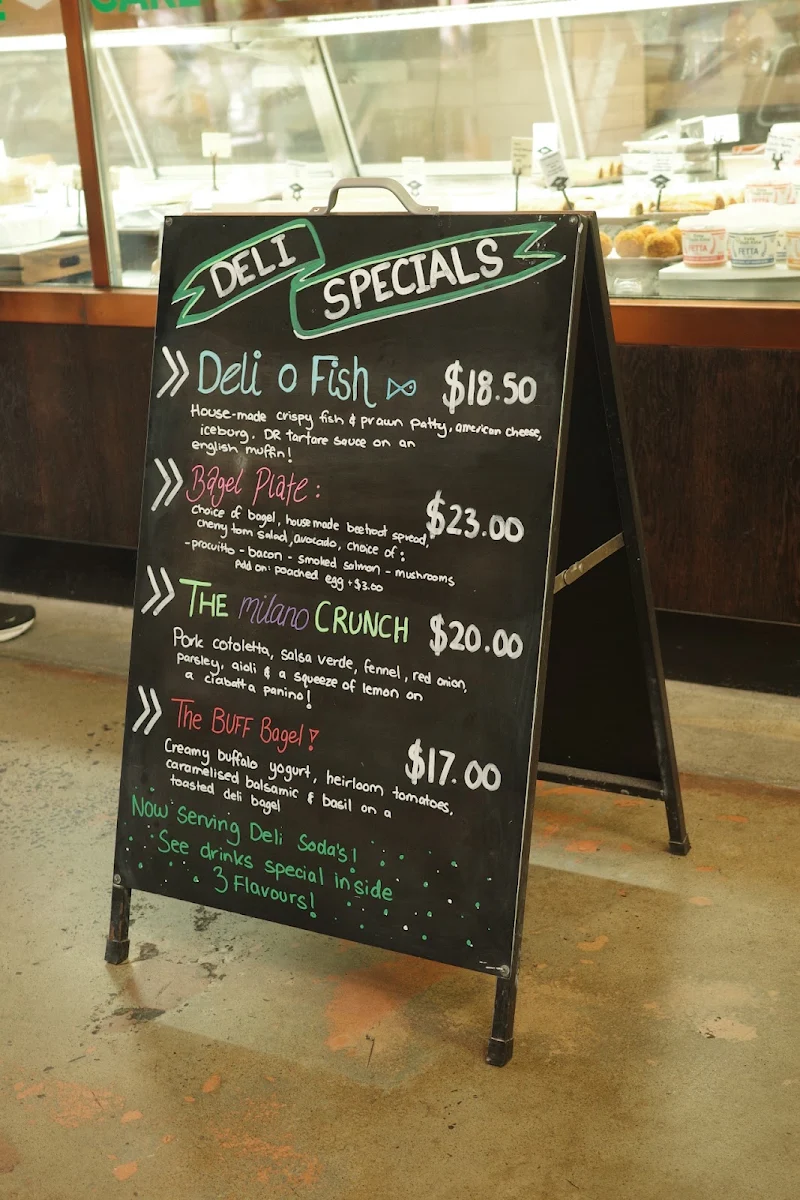 DELI SPECIALS
Deli o Fish $18.50
House-made crispy fish & prawn patty, american cheese,
iceburg, DR tartare sauce on an
english muffin!
Bagel Plate:
$23.00
choice of bagel, house made beetroot spread,
cherry tom salad, avocado, choice of:
-procuitto - bacon - smoked salmon - mushrooms
Add on: poached egg +$3.00
THE milano CRUNCH $20.00
Pork cotoletta, salsa verde, fennel, red onion,
parsley, aioli & a squeeze of lemon on
a ciabatta panino!
The BUFF Bagel!
$17.00
Creamy buffalo yogurt, heirloom tomatoes,
caramelised balsamic & basil on a
toasted deli bagel
Now serving Deli Soda's!
See drinks special inside
3 Flavours!
FETTA
FETTA